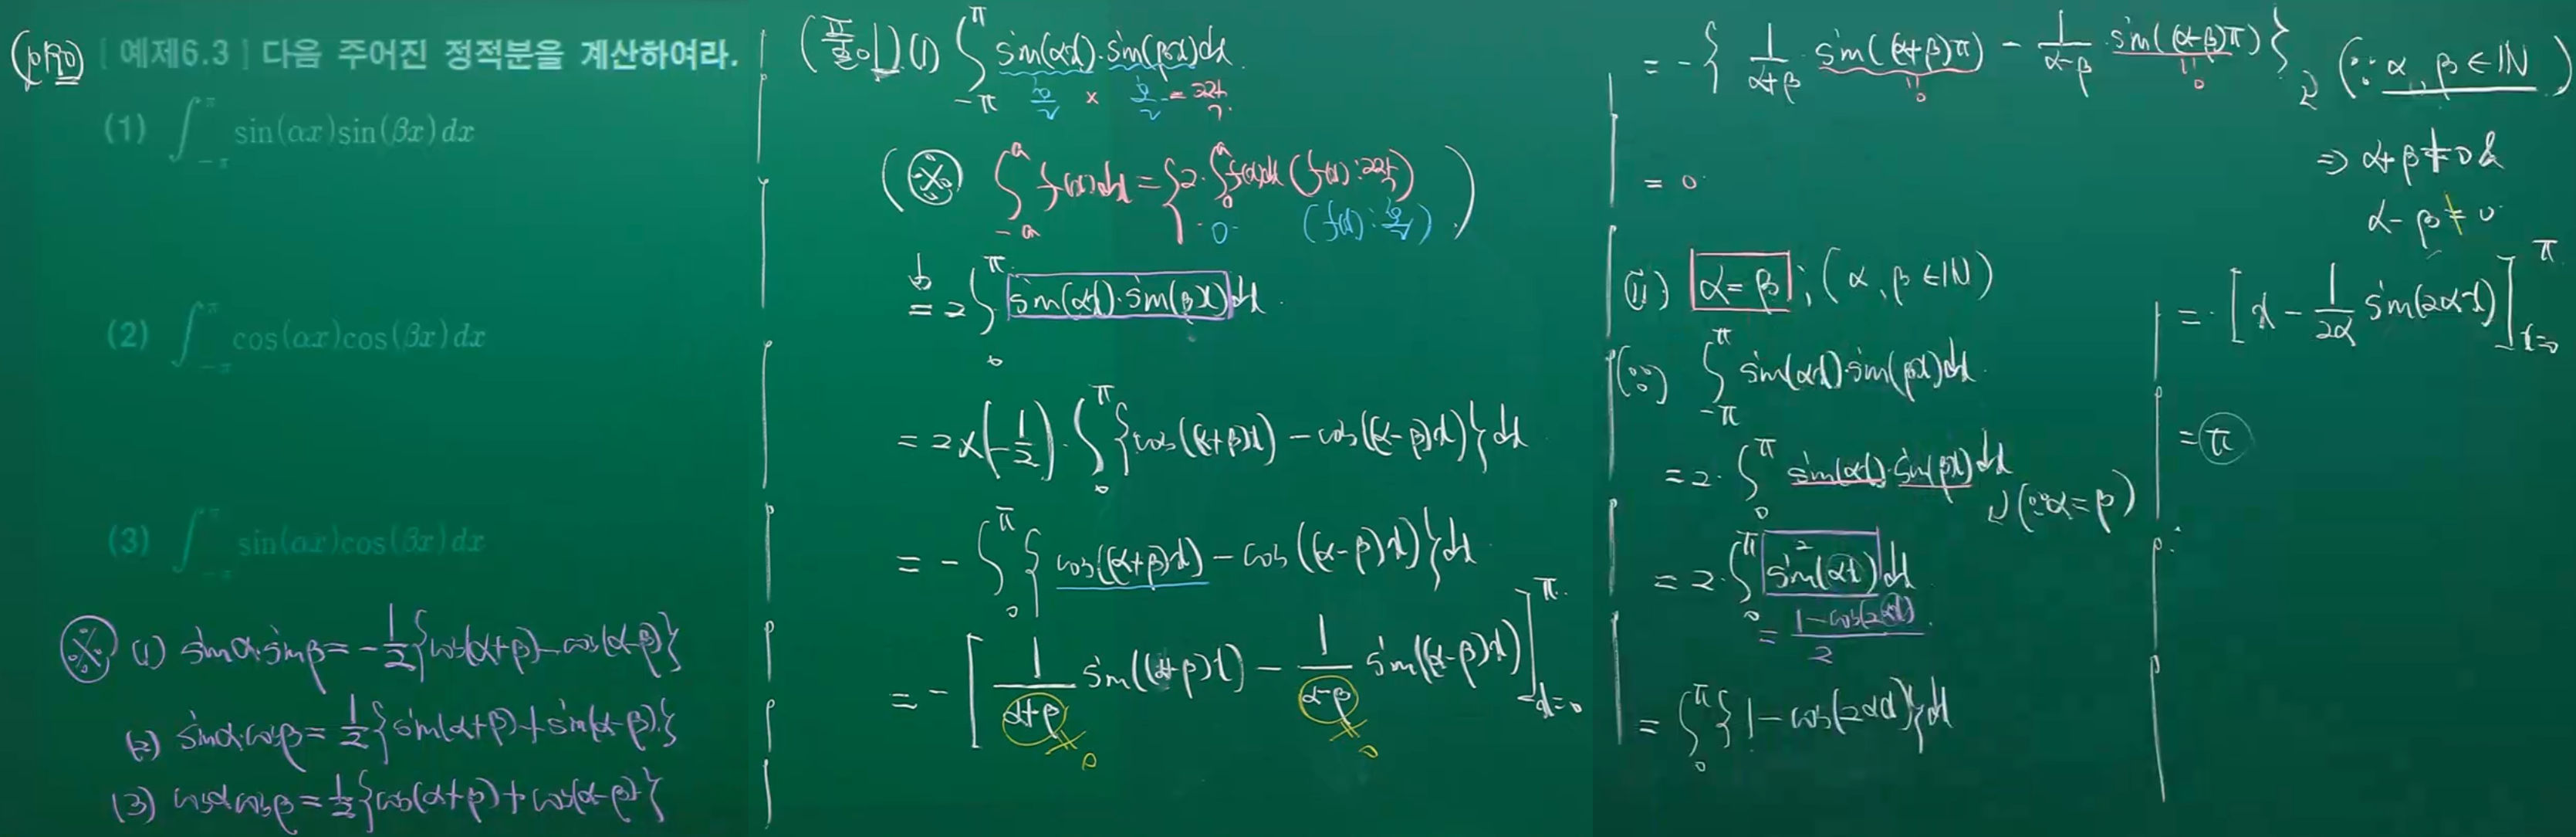 (p190) [ 예제6.3 ] 다음 주어진 정적분을 계산하여라.
(1) ∫_{-π}^{π} sin(αx)sin(βx)dx
(2) ∫_{-π}^{π} cos(αx)cos(βx)dx
(3) ∫_{-π}^{π} sin(αx)cos(βx)dx
※ (1) sinα·sinβ = -1/2{cos(α+β)-cos(α-β)}
(2) sinα·cosβ = 1/2{sin(α+β)+sin(α-β)}
(3) cosα cosβ = 1/2{cos(α+β)+cos(α-β)}
(풀이) (1) ∫_{-π}^{π} sin(αx)·sin(βx)dx
기 × 기 = 우
(※ ∫_{-a}^{a} f(x)dx = { 2·∫_{0}^{a} f(x)dx (f(x): 우)
0 (f(x): 기) )
= 2∫_{0}^{π} sin(αx)·sin(βx)dx
= 2×(-1/2)·∫_{0}^{π} {cos((α+β)x) - cos((α-β)x)}dx
= -∫_{0}^{π} {cos((α+β)x) - cos((α-β)x)}dx
= -[ 1/(α+β) sin((α+β)x) - 1/(α-β) sin((α-β)x) ]_{x=0}^{π}
≠ 0 ≠ 0
= -{ 1/(α+β) sin((α+β)π) - 1/(α-β) sin((α-β)π) } (∵ α, β ∈ ℕ)
= 0 = 0
⇒ α+β ≠ 0 &
α-β ≠ 0
= 0.
(ii) α = β ; (α, β ∈ ℕ)
(∵) ∫_{-π}^{π} sin(αx)·sin(βx)dx
= 2·∫_{0}^{π} sin(αx)·sin(βx)dx
(∵ α = β)
= 2·∫_{0}^{π} sin²(αx)dx
= (1-cos(2αx))/2
= ∫_{0}^{π} {1-cos(2αx)}dx
= [ x - 1/(2α) sin(2αx) ]_{x=0}^{π}
= π